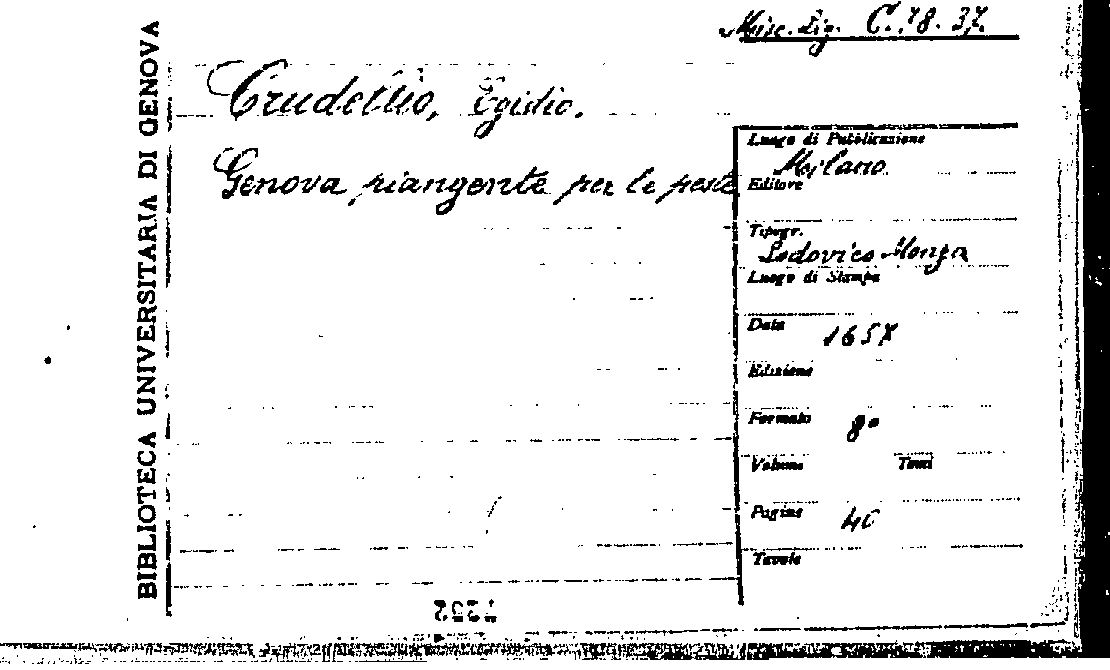 Misc. Lig. C. 18. 37.
BIBLIOTECA UNIVERSITARIA DI GENOVA
Crudellio, Egidio.
Genova piangente per le peste
Luogo di Pubblicazione
Milano.
Editore
Tipogr.
Lodovico Monza
Luogo di Stampa
Data 1657
Edizione
Formato 8°
Volume Tomi
Pagine 40
Tavole